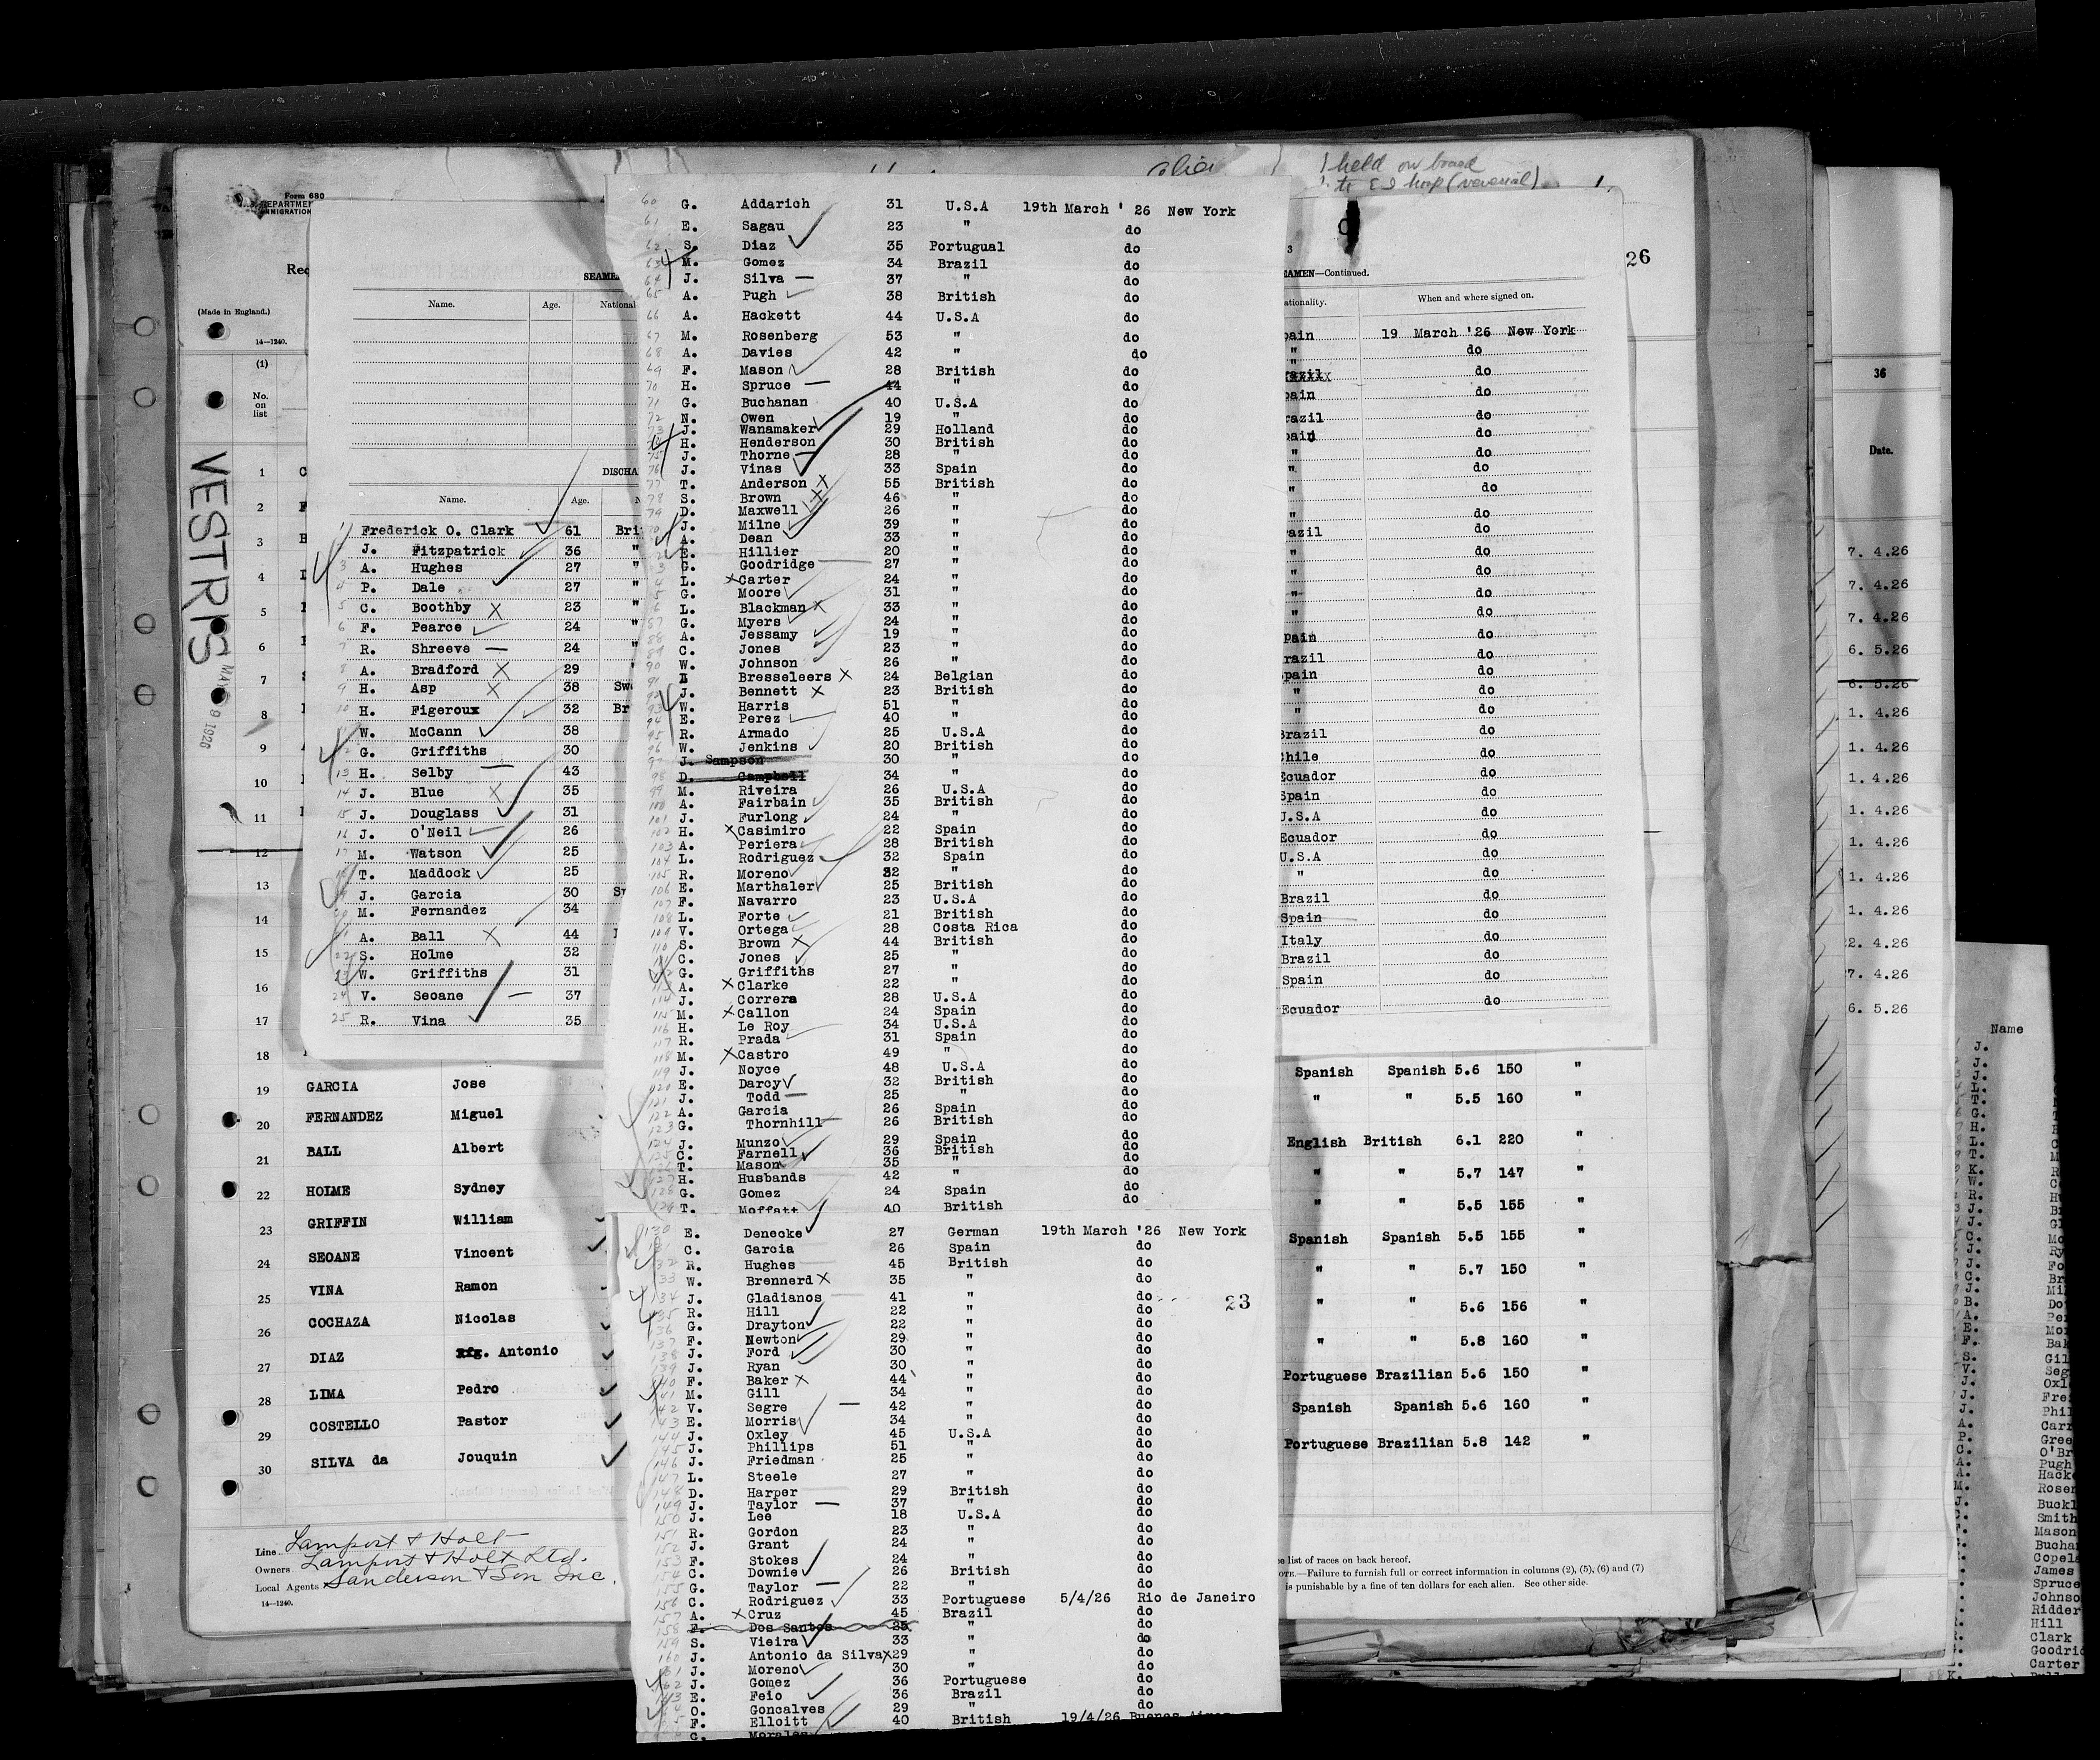 Form 680
U.S. DEPARTMENT
IMMIGRATION
(Made in England.)
14—1240.
(1)
No.
on
list
VESTRIS
MAY 9 1926
held on board
to E I hosp (reversal)
SEAMEN
Name. Age. National
DISCHA
Name. Age.
1 Frederick O. Clark 61 Brit
J. Fitzpatrick 36 "
3 A. Hughes 27 "
4 P. Dale 27 "
5 C. Boothby X 23 "
6 F. Pearce 24 "
7 R. Shreeve — 24 "
8 A. Bradford X 29
9 H. Asp X 38 Swe
10 H. Figeroux 32 Br
W. McCann 38
G. Griffiths 30
13 H. Selby — 43
14 J. Blue X 35
15 J. Douglass 31
16 J. O'Neil 26
17 M. Watson 25
T. Maddock 25
J. Garcia 30
M. Fernandez 34
A. Ball X 44
22 S. Holme 32
23 W. Griffiths 31
24 V. Seoane — 37
25 R. Vina 35
60 G. Addarich 31 U.S.A 19th March ' 26 New York
61 E. Sagau 23 " do
62 S. Diaz 35 Portugual do
63 M. Gomez 34 Brazil do
64 J. Silva — 37 " do
65 A. Pugh 38 British do
66 A. Hackett 44 U.S.A do
67 M. Rosenberg 53 " do
68 A. Davies 42 " do
69 F. Mason 28 British do
70 H. Spruce — 44 " do
71 G. Buchanan 40 U.S.A do
72 N. Owen 19 " do
73 J. Wanamaker 29 Holland do
H. Henderson 30 British do
75 J. Thorne 28 " do
76 J. Vinas 33 Spain do
77 T. Anderson X 55 British do
78 S. Brown X 46 " do
79 D. Maxwell 26 " do
J. Milne 39 " do
A. Dean 33 " do
E. Hillier 20 " do
G. Goodridge — 27 " do
L. X Carter 24 " do
G. Moore 31 " do
L. Blackman X 33 " do
87 G. Myers 24 " do
88 A. Jessamy 19 " do
89 C. Jones 23 " do
90 W. Johnson 26 " do
91 Bresseleers X 24 Belgian do
92 J. Bennett X 23 British do
93 W. Harris 51 " do
94 E. Perez 40 " do
95 R. Armado 25 U.S.A do
96 W. Jenkins 20 British do
97 J. Sampson 30 " do
98 D. Campbell 34 " do
99 M. Riveira 26 U.S.A do
100 A. Fairbain 35 British do
101 J. Furlong 24 " do
102 H. X Casimiro 22 Spain do
103 A. Periera 28 British do
104 L. Rodriguez 32 Spain do
105 R. Moreno 32 " do
106 E. Marthaler 25 British do
107 F. Navarro 23 U.S.A do
108 L. Forte 21 British do
109 V. Ortega 28 Costa Rica do
110 S. Brown X 44 British do
C. Jones 25 " do
G. Griffiths 27 " do
A. X Clarke 22 " do
114 J. Correra 28 U.S.A do
115 M. X Callon 24 Spain do
116 H. Le Roy 34 U.S.A do
117 R. Prada 31 Spain do
118 M. X Castro 49 " do
119 J. Noyce 48 U.S.A do
120 E. Darcy 32 British do
121 J. Todd — 25 " do
122 A. Garcia 26 Spain do
123 G. Thornhill 26 British do
124 J. Munzo 29 Spain do
125 C. Farnell 36 British do
T. Mason 35 " do
127 H. Husbands 42 " do
128 G. Gomez 24 Spain do
129 T. Moffatt 40 British
130 E. Denecke 27 German 19th March '26 New York
C. Garcia 26 Spain do
R. Hughes 45 British do
33 W. Brennerd X 35 " do
34 J. Gladianos 41 " do
23
35 R. Hill 22 " do
36 G. Drayton 22 " do
137 F. Newton 29 " do
138 J. Ford 30 " do
139 J. Ryan 30 " do
F. Baker X 44 " do
41 M. Gill 34 " do
142 V. Segre — 42 " do
143 E. Morris 34 " do
144 J. Oxley 45 U.S.A do
145 J. Phillips 51 " do
146 J. Friedman 25 " do
147 L. Steele 27 " do
148 D. Harper 29 British do
149 J. Taylor — 37 " do
150 J. Lee 18 U.S.A do
151 R. Gordon 23 " do
152 J. Grant 24 " do
153 F. Stokes 24 " do
154 C. Downie 26 British do
155 G. Taylor — 22 " do
156 C. Rodriguez 33 Portuguese 5/4/26 Rio de Janeiro
157 A. X Cruz 45 Brazil do
158 F. Dos Santos 25 " do
159 S. Vieira 33 " do
160 J. Antonio da Silva X 29 " do
161 J. Moreno 30 " do
162 J. Gomez 36 Portuguese do
163 E. Feio 36 Brazil do
O. Goncalves 29 " do
F. Elloitt 40 British 19/4/26 Buenos Aires
C. Morales
3
EAMEN—Continued.
ationality. When and where signed on.
pain 19 March '26 New York
" do
razil do
pain do
razil do
pain do
" do
" do
" do
" do
razil do
" do
" do
" do
" do
Spain do
razil do
pain do
" do
" do
Brazil do
Chile do
Ecuador do
Spain do
U.S.A do
Ecuador do
U.S.A do
" do
Brazil do
Spain do
Italy do
Brazil do
Spain do
Ecuador do
26
1
2
3
4
5
6
7
8
9
10
11
12
13
14
15
16
17
18
19 GARCIA Jose Spanish Spanish 5.6 150 "
20 FERNANDEZ Miguel " " 5.5 160 "
21 BALL Albert English British 6.1 220 "
22 HOLME Sydney " " 5.7 147 "
23 GRIFFIN William " " 5.5 155 "
24 SEOANE Vincent Spanish Spanish 5.5 155 "
25 VINA Ramon " " 5.7 150 "
26 COCHAZA Nicolas " " 5.6 156 "
27 DIAZ Antonio " " 5.8 160 "
28 LIMA Pedro Portuguese Brazilian 5.6 150 "
29 COSTELLO Pastor Spanish Spanish 5.6 160 "
30 SILVA da Jouquin Portuguese Brazilian 5.8 142 "
Line Lamport & Holt
Owners Lamport & Holt Ltd.
Local Agents Sanderson & Son Inc.
14—1240.
e list of races on back hereof.
NOTE.—Failure to furnish full or correct information in columns (2), (5), (6) and (7)
is punishable by a fine of ten dollars for each alien. See other side.
36
Date.
7. 4.26
7. 4.26
7. 4.26
6. 5.26
6. 5.26
1. 4.26
1. 4.26
1. 4.26
1. 4.26
1. 4.26
1. 4.26
1. 4.26
2. 4.26
7. 4.26
6. 5.26
Name
J.
J.
J.
L.
T.
G.
H.
L.
T.
K.
W.
R.
J.
J.
C.
J.
J.
C.
J.
B. Do
A. Per
E. Mor
F. Bak
S. Gil
V. Seg
J. Oxl
J. Frei
J. Phil
A. Carr
P. Gree
C. O'Br
A. Pugh
A. Hack
M. Rosen
J. Buckl
C. Smith
F. Mason
Bucha
Copela
James
Spruce
Johnso
Ridder
Hill
Clark
Goodric
Carter